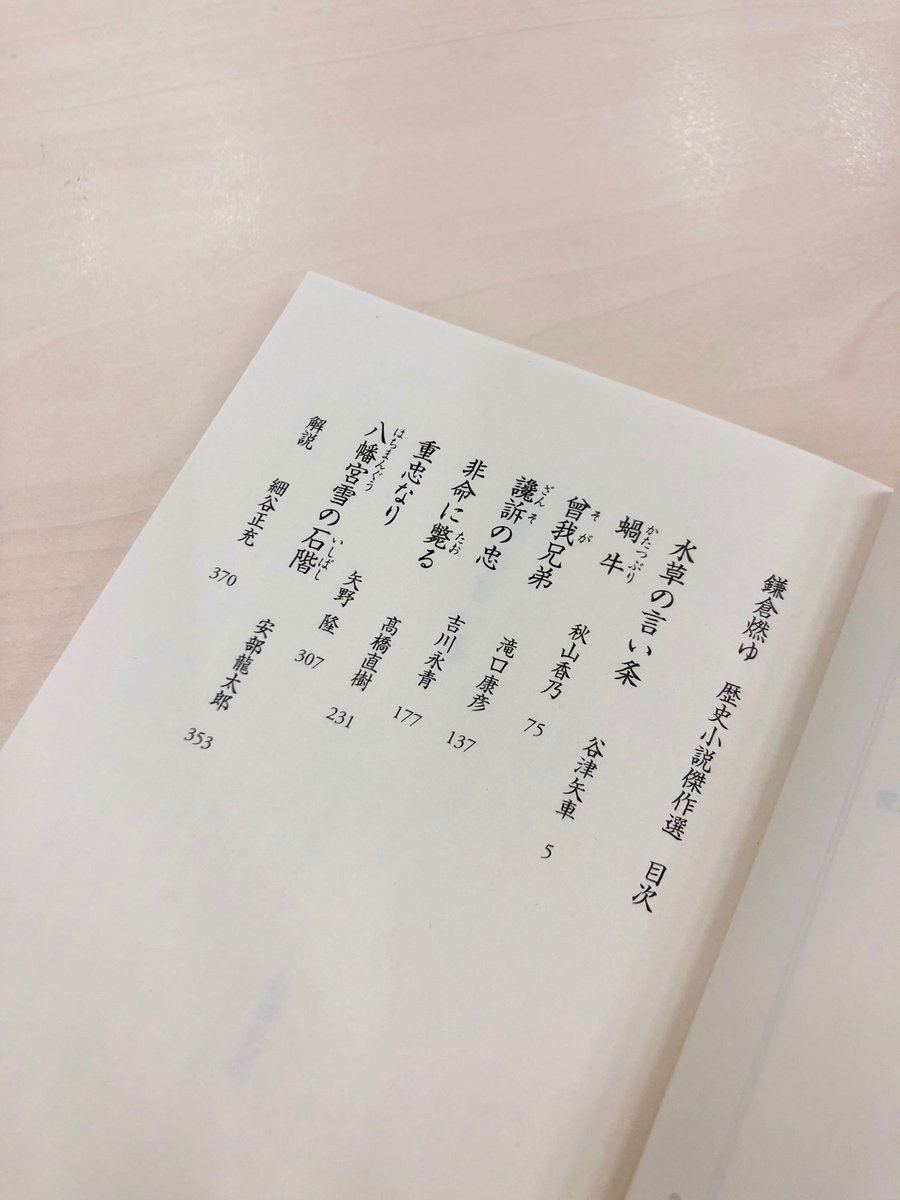 鎌倉燃ゆ 歴史小説傑作選 目次
水草の言い条 谷津矢車 5
かたつぶり
蝸牛 秋山香乃 75
そが
曾我兄弟 滝口康彦 137
ざんそ
讒訴の忠 吉川永青 177
たお
非命に斃る 髙橋直樹 231
重忠なり 矢野 隆 307
はちまんぐう いしばし
八幡宮雪の石階 安部龍太郎 353
解説 細谷正充 370